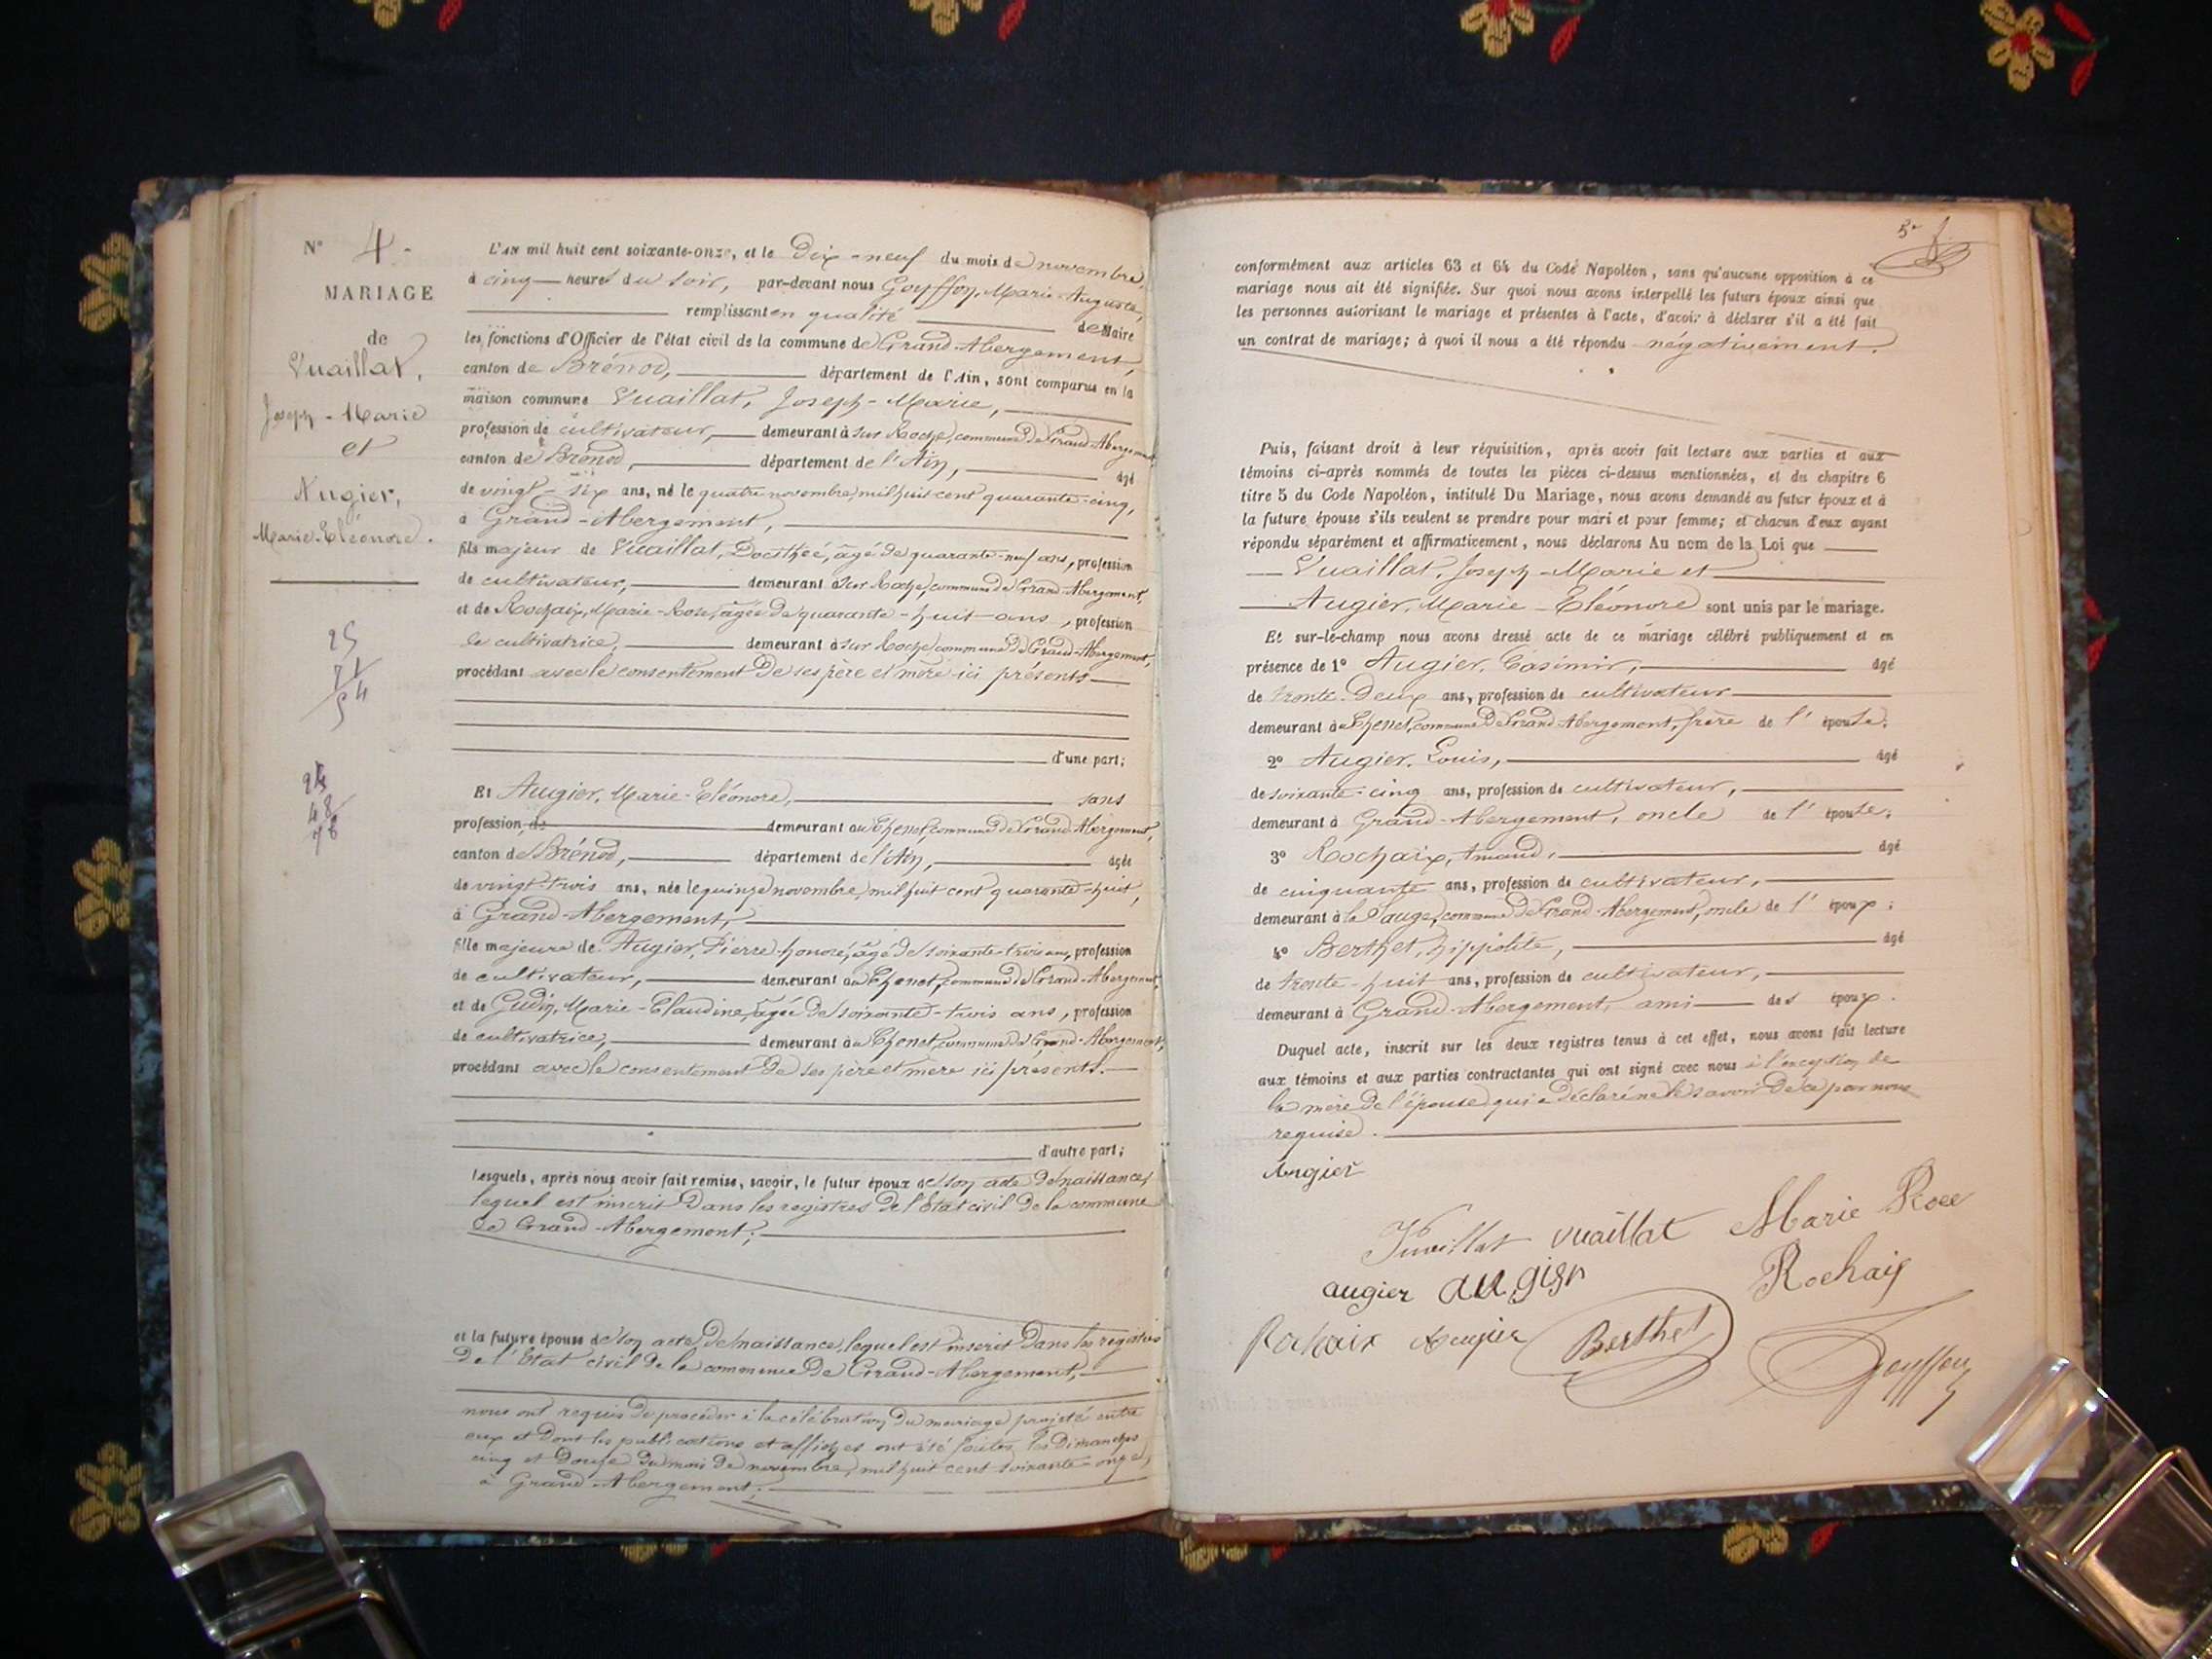 N° 4.
MARIAGE
de
Vuaillat,
Joseph-Marie
et
Augier,
Marie-Eléonore.
25
71
54
48
76
L'an mil huit cent soixante-onze, et le Dix-neuf du mois de novembre,
à cinq heures du soir, par-devant nous Goyffon, Marie-Auguste,
remplissant en qualité de Maire
les fonctions d'Officier de l'état civil de la commune de Grand-Abergement,
canton de Brénod, département de l'Ain, sont comparus en la
maison commune Vuaillat, Joseph-Marie,
profession de cultivateur, demeurant à sur Roche, commune de Grand-Abergement
canton de Brénod, département de l'Ain, âgé
de vingt-six ans, né le quatre novembre mil huit cent quarante-cinq,
à Grand-Abergement,
fils majeur de Vuaillat, Dosithée, âgé de quarante-neuf ans, profession
de cultivateur, demeurant à sur Roche, commune de Grand-Abergement,
et de Rochaix, Marie-Rose, âgée de quarante-huit ans, profession
de cultivatrice, demeurant à sur Roche commune de Grand-Abergement,
procédant avec le consentement de ses père et mère ici présents
d'une part;
Et Augier, Marie-Eléonore, sans
profession de demeurant au Chenet, commune de Grand-Abergement,
canton de Brénod, département de l'Ain, âgée
de vingt-trois ans, née le quinze novembre mil huit cent quarante-huit,
à Grand-Abergement,
fille majeure de Augier, Pierre-honoré, âgé de soixante-trois ans, profession
de cultivateur, demeurant au Chenet, commune de Grand-Abergement,
et de Gudin, Marie-Claudine, âgée de soixante-trois ans, profession
de cultivatrice, demeurant à au Chenet, commune de Grand-Abergement,
procédant avec le consentement de ses père et mère ici présents.
d'autre part;
Lesquels, après nous avoir fait remise, savoir, le futur époux de son acte de naissance,
lequel est inscrit dans les registres de l'Etat civil de la commune
de Grand-Abergement;
et la future épouse de son acte de naissance, lequel est inscrit dans les registres
de l'Etat civil de la commune de Grand-Abergement,
nous ont requis de procéder à la célébration du mariage projeté entre
eux et dont les publications et affiches ont été faites les Dimanches
cinq et douze du mois de novembre, mil huit cent soixante-onze,
à Grand-Abergement;
5e
conformément aux articles 63 et 64 du Code Napoléon, sans qu'aucune opposition à ce
mariage nous ait été signifiée. Sur quoi nous avons interpellé les futurs époux ainsi que
les personnes autorisant le mariage et présentes à l'acte, d'avoir à déclarer s'il a été fait
un contrat de mariage; à quoi il nous a été répondu négativement.
Puis, faisant droit à leur réquisition, après avoir fait lecture aux parties et aux
témoins ci-après nommés de toutes les pièces ci-dessus mentionnées, et du chapitre 6
titre 5 du Code Napoléon, intitulé Du Mariage, nous avons demandé au futur époux et à
la future épouse s'ils veulent se prendre pour mari et pour femme; et chacun d'eux ayant
répondu séparément et affirmativement, nous déclarons Au nom de la Loi que
Vuaillat, Joseph-Marie et
Augier, Marie-Eléonore sont unis par le mariage.
Et sur-le-champ nous avons dressé acte de ce mariage célébré publiquement et en
présence de 1° Augier, Casimir, âgé
de trente-deux ans, profession de cultivateur
demeurant à au Chenet, commune de Grand-Abergement, frère de l'épouse.
2° Augier, Louis, âgé
de soixante-cinq ans, profession de cultivateur,
demeurant à Grand-Abergement, oncle de l'épouse.
3° Rochaix, Amand, âgé
de cinquante ans, profession de cultivateur,
demeurant à la Sauge, commune de Grand-Abergement, oncle de l'époux;
4° Berthet, hippolite, âgé
de trente-huit ans, profession de cultivateur,
demeurant à Grand-Abergement, ami des époux.
Duquel acte, inscrit sur les deux registres tenus à cet effet, nous avons fait lecture
aux témoins et aux parties contractantes qui ont signé avec nous à l'exception de
la mère de l'épouse qui a déclaré ne le savoir de ce par nous
requise.
Augier
Vuaillat vuaillat Marie Rose
augier augier Rochaix
Rochaix Augier Berthet Goyffon